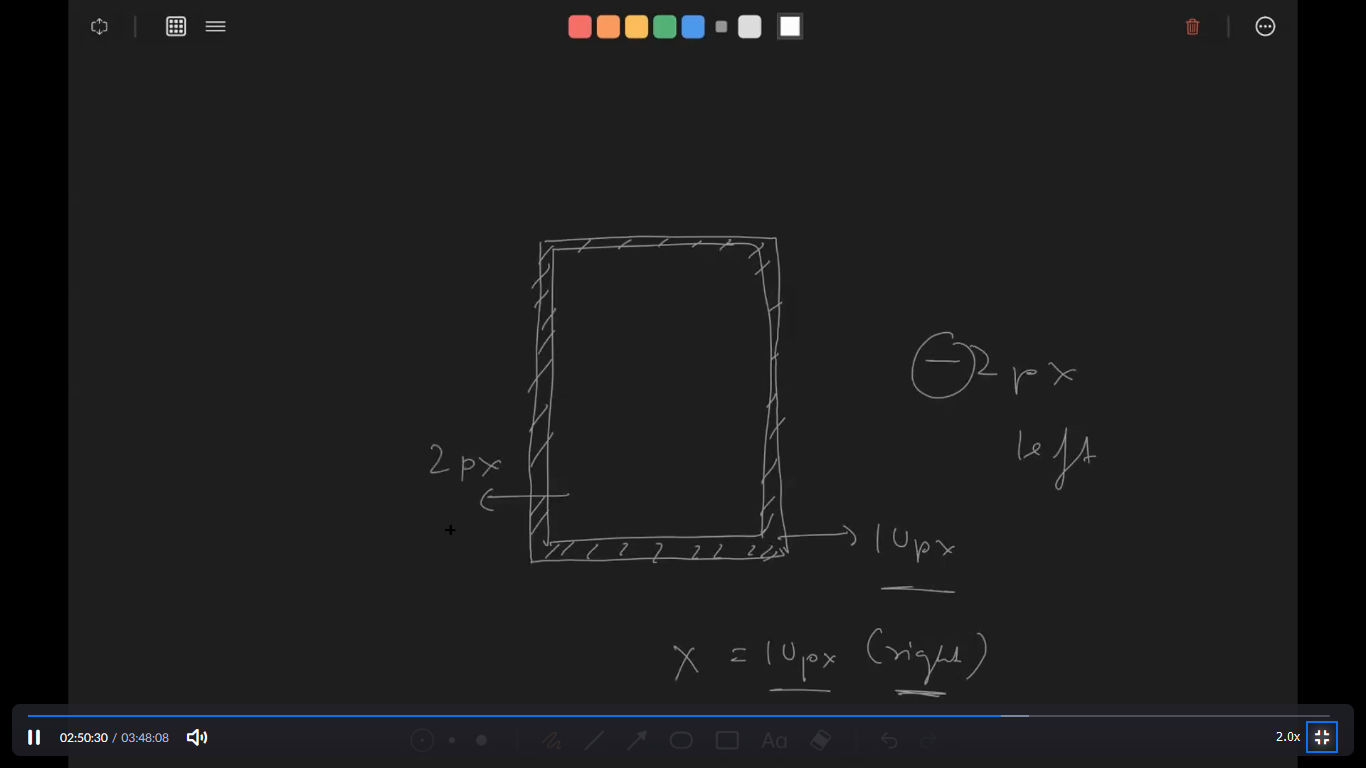 -2 px
left
2px
10px
X = 10px (right)
02:50:30 / 03:48:08
2.0x
Aa